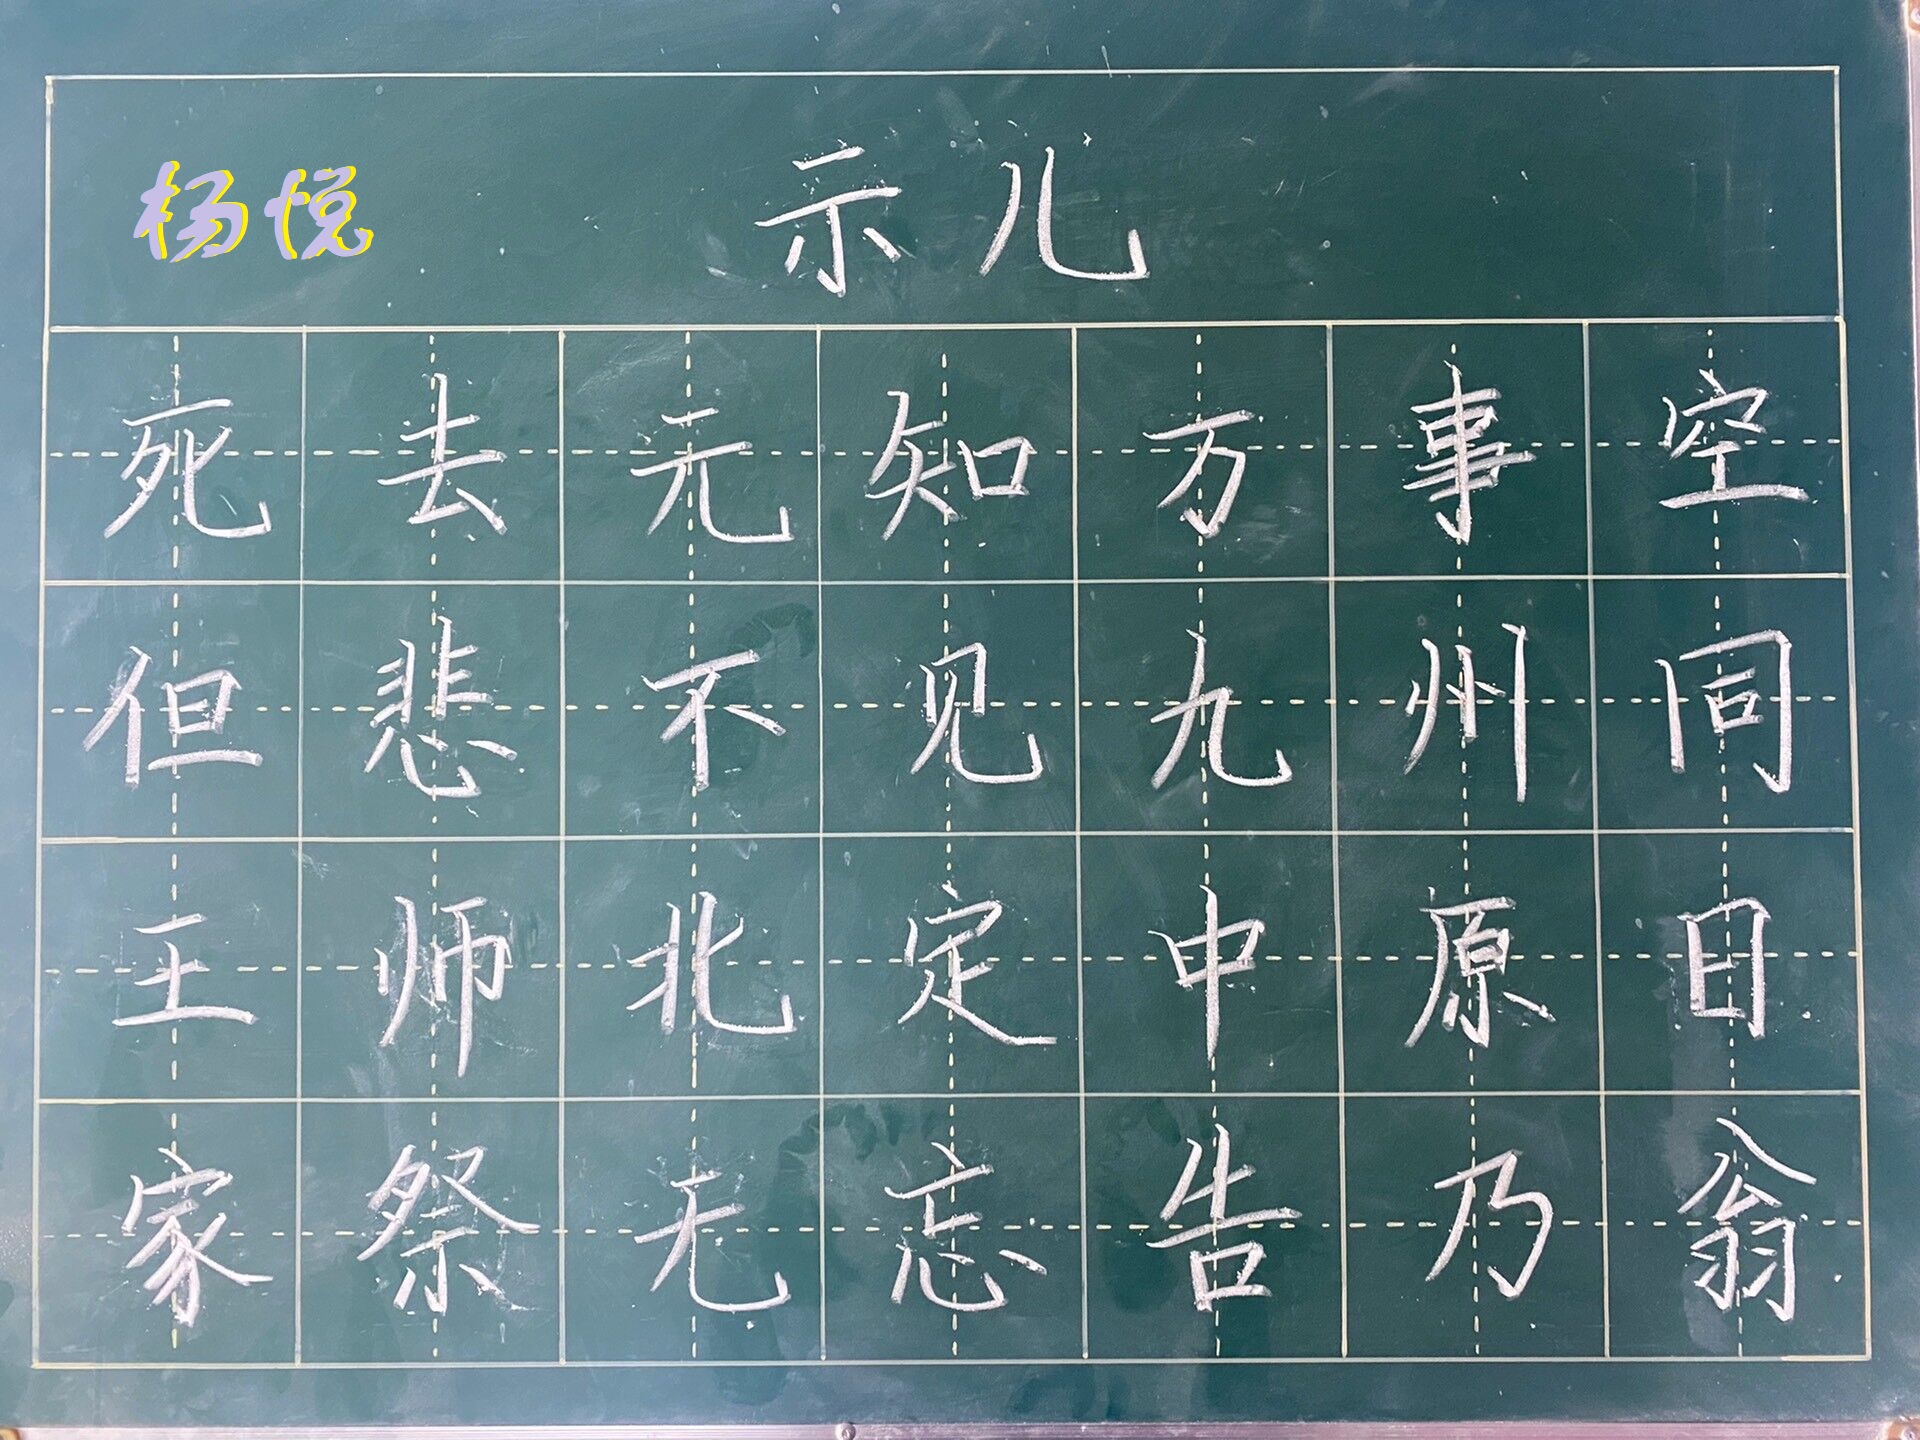 杨悦
示儿
死去元知万事空
但悲不见九州同
王师北定中原日
家祭无忘告乃翁